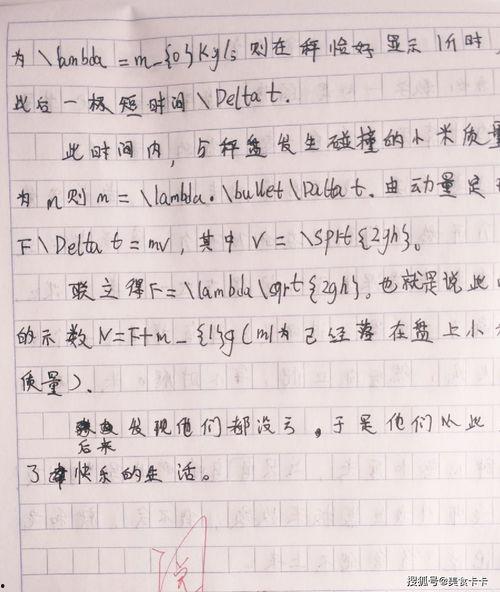 为\lambda=m_{0}Kg/s则在秤恰好显示1斤时
此后一极短时间\Delta t.
此时间内,与秤盘发生碰撞的小米质量
为m则m=\lambda.\bullet\Daltat.由动量定
F\Delta t=mv,其中V=\sprt{2gh}。
联立得F=\lambda\qrt{2gh}。也就是说此
的示数N=F+m_{1}g(m1为已经落在盘上小
质量).
发现他们都没云,于是他们从此
后来
了快乐的生活。
阅
搜狐号@美食卡卡